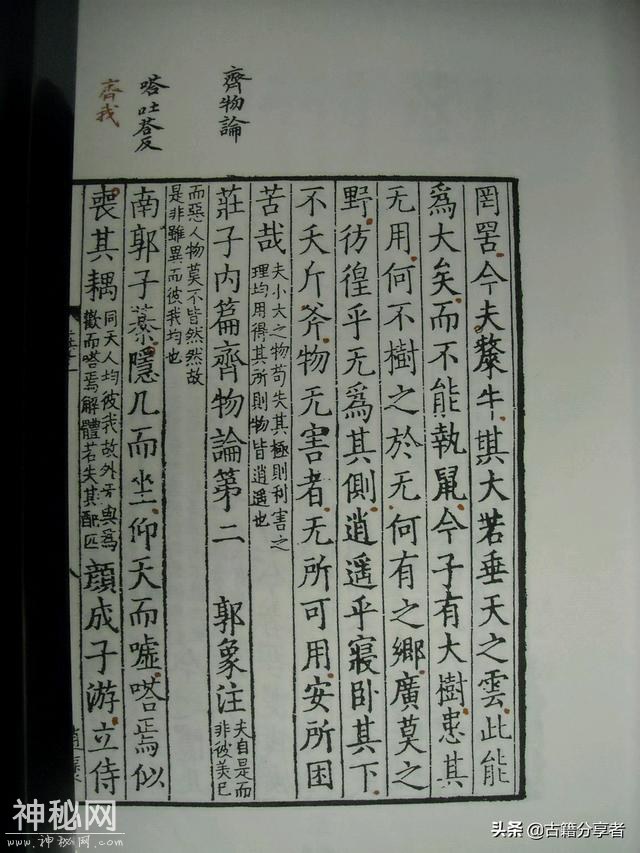 齊物論
嗒吐荅反
齊我
罔罟今夫斄牛其大若垂天之雲此能
爲大矣而不能執鼠今子有大樹患其
无用何不樹之於无何有之鄉廣莫之
野彷徨乎无爲其側逍遥乎寢卧其下
不夭斤斧物无害者无所可用安所困
苦哉
夫小大之物苟失其極則利害之
理均用得其所則物皆逍遥也
莊子内篇齊物論第二 郭象注
夫自是而
非彼美己
而惡人物莫不皆然然故
是非雖異而彼我均也
南郭子綦隱几而坐仰天而噓嗒焉似
喪其耦
同天人均彼我故外无與爲
歡而嗒焉解體若失其配匹
顏成子游立侍
神秘网
www.神秘网.com
头条 @古籍分享者